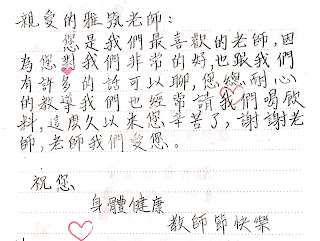 親愛的雅敦老師：
您是我們最喜歡的老師,因
為您對我們非常的好,也跟我們
有許多的話可以聊,您總耐心
的教導我們也經常請我們喝飲
料,這麼久以來您辛苦了,謝謝老
師,老師我們愛您。
祝您
身體健康
教師節快樂